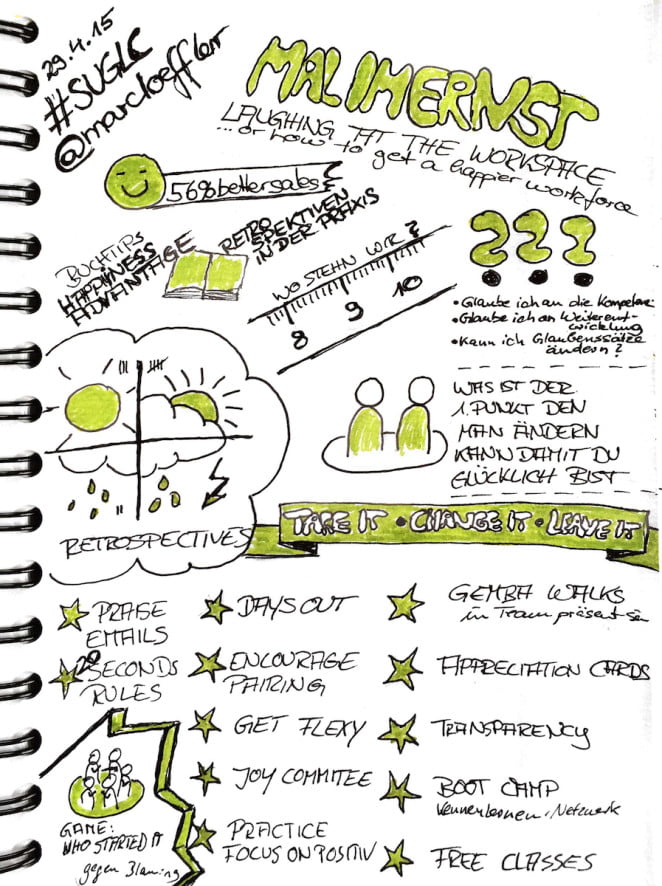 29.4.15
#SUGLC
@marcloeffler
MALIMERNST
LAUGHING AT THE WORKSPACE
...or how to get a happier workforce
56% better sales
BUCHTIPS
HAPPINESS
ADVANTAGE
RETRO
SPEKTIVEN
IN DER PRAXIS
WO STEHN WIR?
8 9 10
???
• Glaube ich an die Kompetenz
• Glaube ich an Weiterent-
wicklung
• Kann ich Glaubenssätze
ändern?
WAS IST DER
1. PUNKT DEN
MAN ÄNDERN
KANN DAMIT DU
GLÜCKLICH BIST
RETROSPECTIVES
TAKE IT • CHANGE IT • LEAVE IT
PRAISE
EMAILS
20 SECONDS
RULES
DAYS OUT
ENCOURAGE
PAIRING
GET FLEXY
JOY COMMITEE
PRACTICE
FOCUS ON POSITIV
GEMBA WALKS
im Team präsent sein
APPRECIATION CARDS
TRANSPARENCY
BOOT CAMP
Kennenlernen, Netzwerk
FREE CLASSES
GAME:
WHO STARTED IT
gegen Blaming